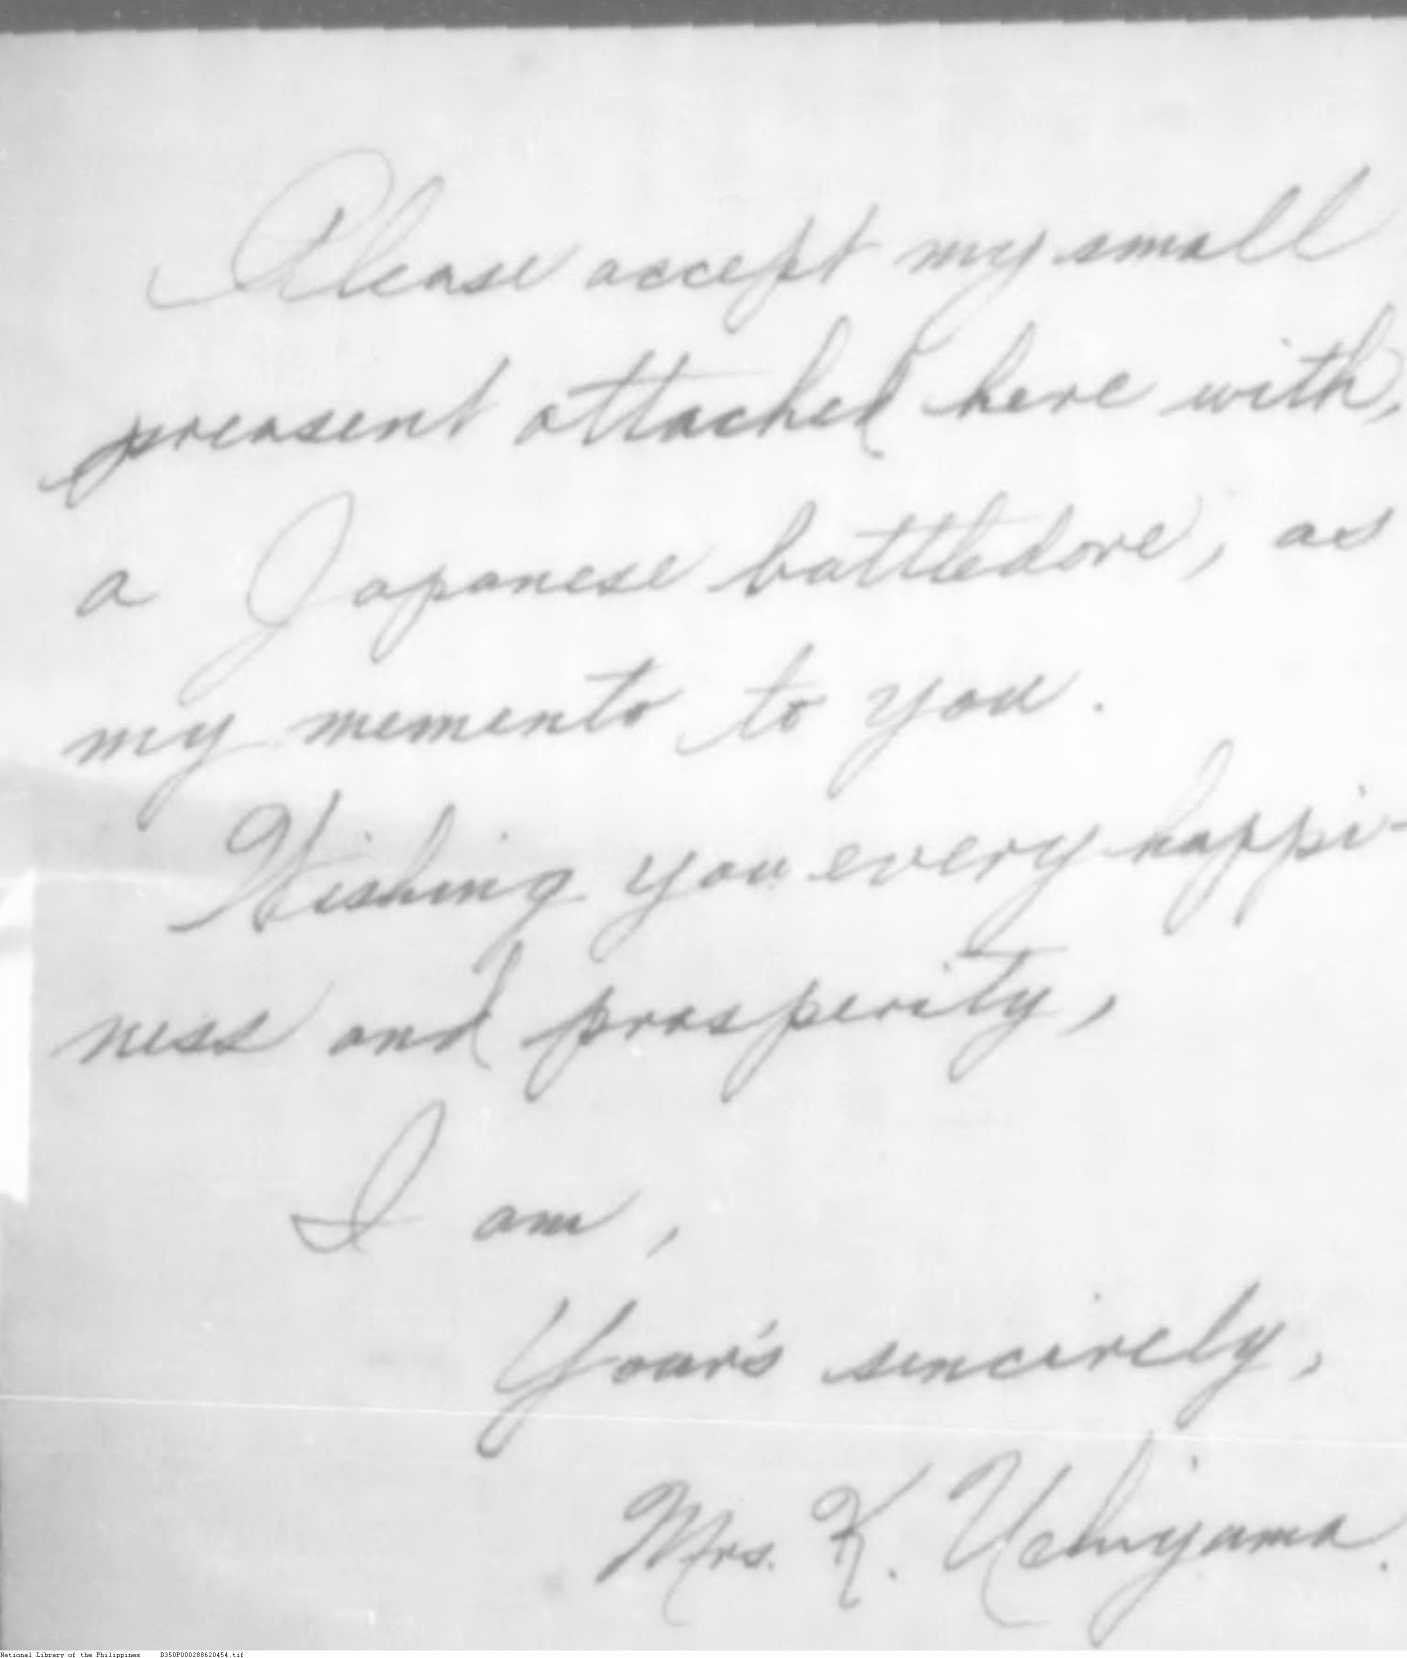 Please accept my small
preasent attached here with,
a Japanese battledore, as
my memento to you.
Wishing you every happi-
ness and prosperity,
I am,
Your's sincirely,
Mrs. K. Uchiyama.
National Library of the Philippines B350P000288620454.tif